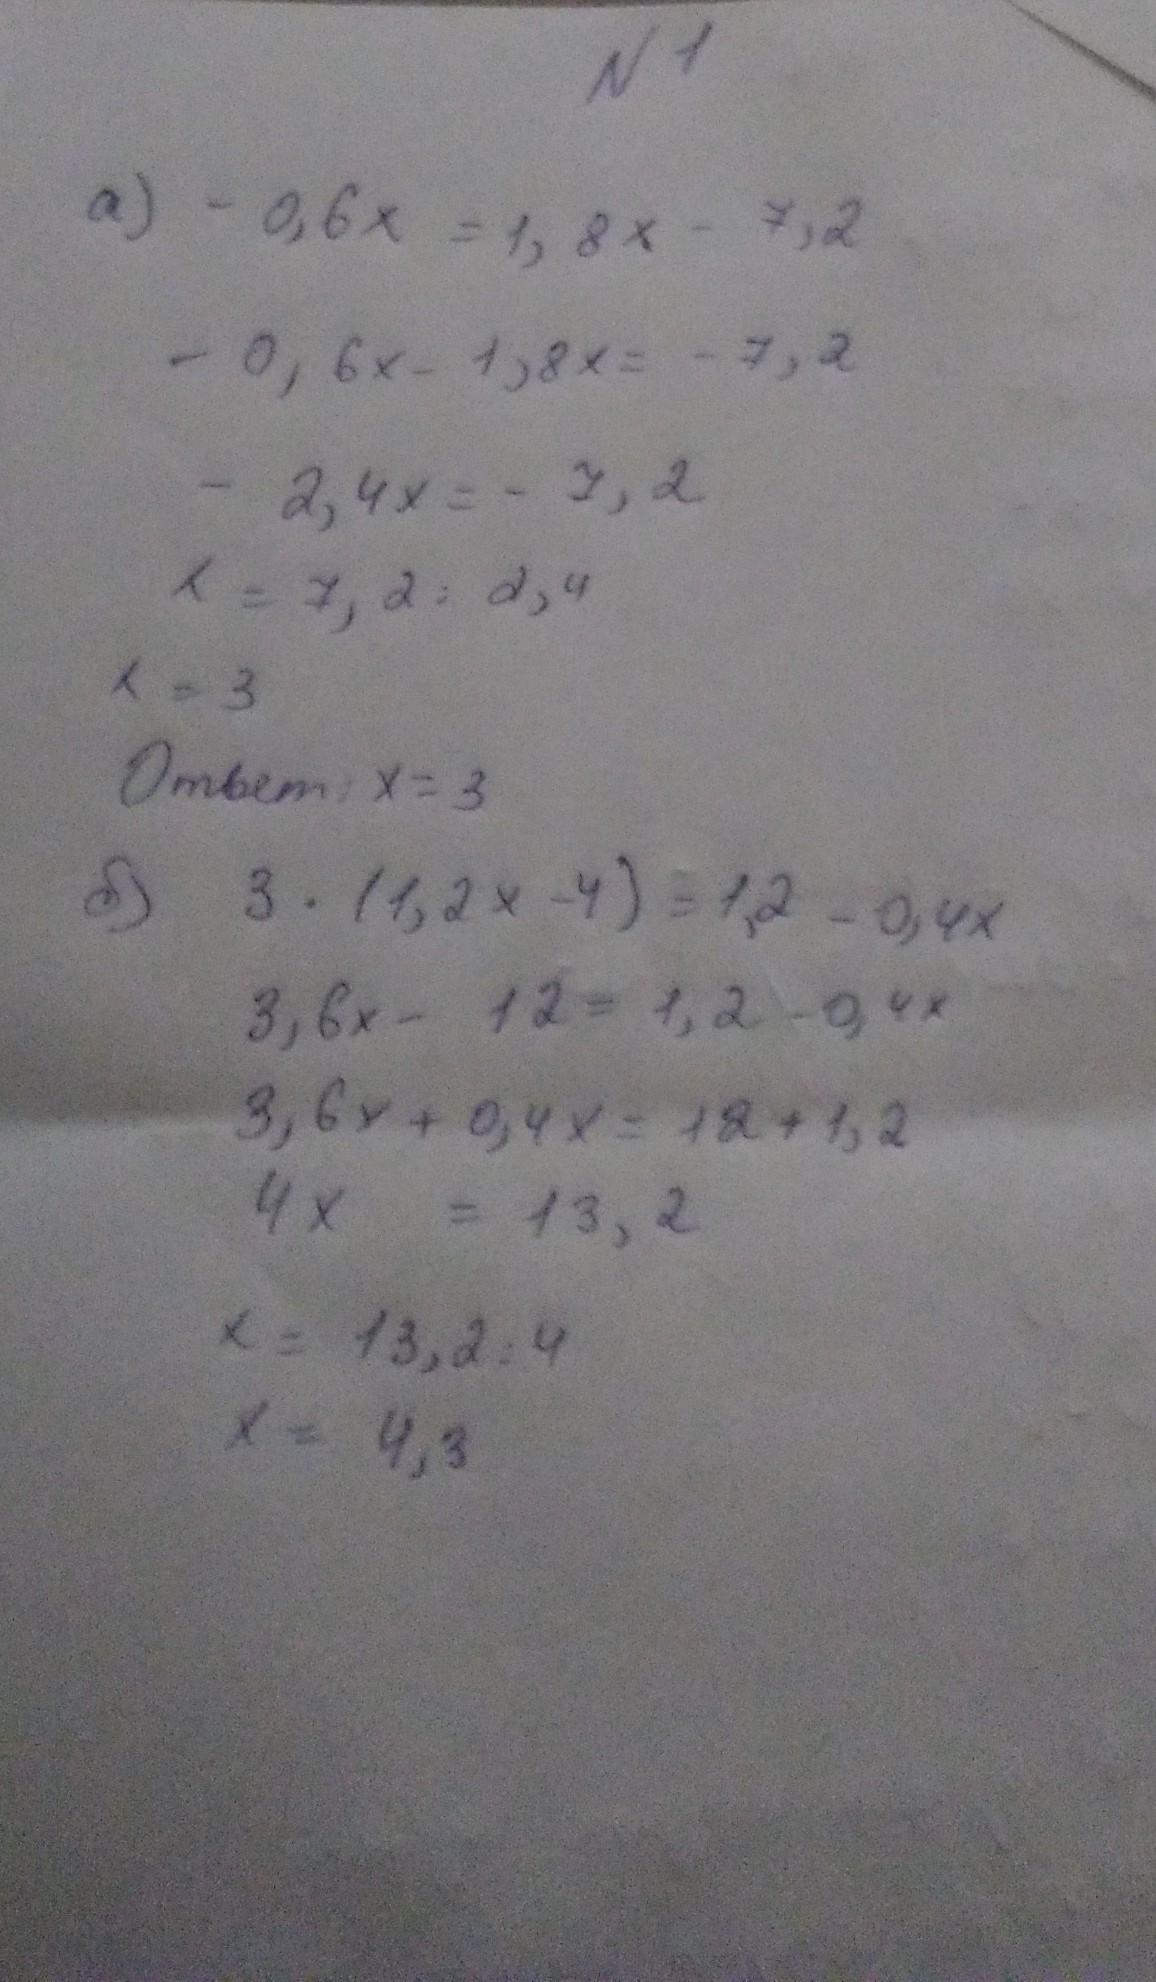 N 1
а) - 0,6x = 1,8x - 7,2
- 0,6x - 1,8x = - 7,2
- 2,4x = - 7,2
x = 7,2 : 2,4
x = 3
Ответ: x = 3
б) 3 · (1,2x - 4) = 1,2 - 0,4x
3,6x - 12 = 1,2 - 0,4x
3,6x + 0,4x = 12 + 1,2
4x = 13,2
x = 13,2 : 4
x = 4,3